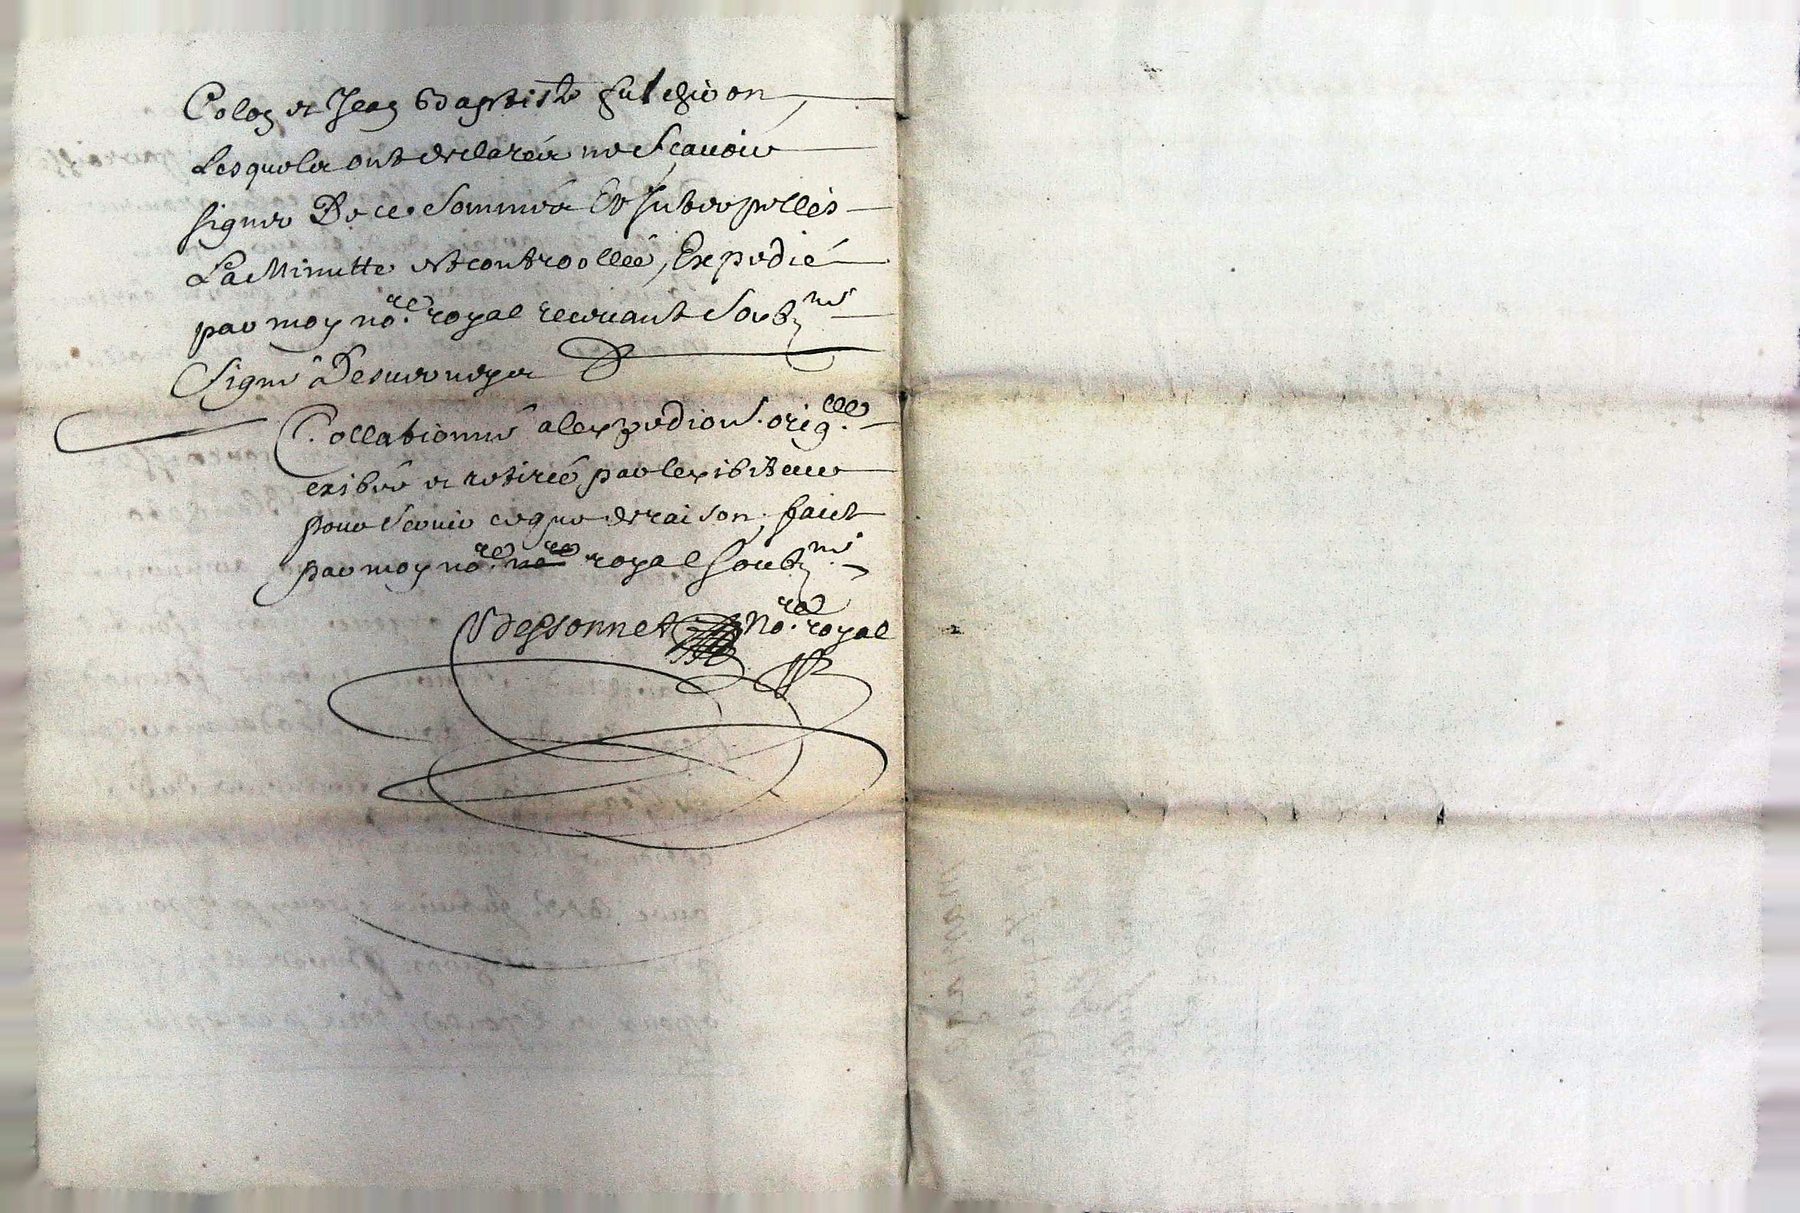 Colog et Jeag Baptiste
Lesquels ont declarés ne Scauoir
signer De ce Sommés Et Interpellés
La Minutte est controollée, Expedié
par moy no.re royal receuant Soubz.né
Signé
Collationné a lexpedion orig.lle
exibée et retirée par lexibiteur
pour Seruir ce que de raison, faict
par moy no.re royal Soubz.né
Bessonnet No.re royal